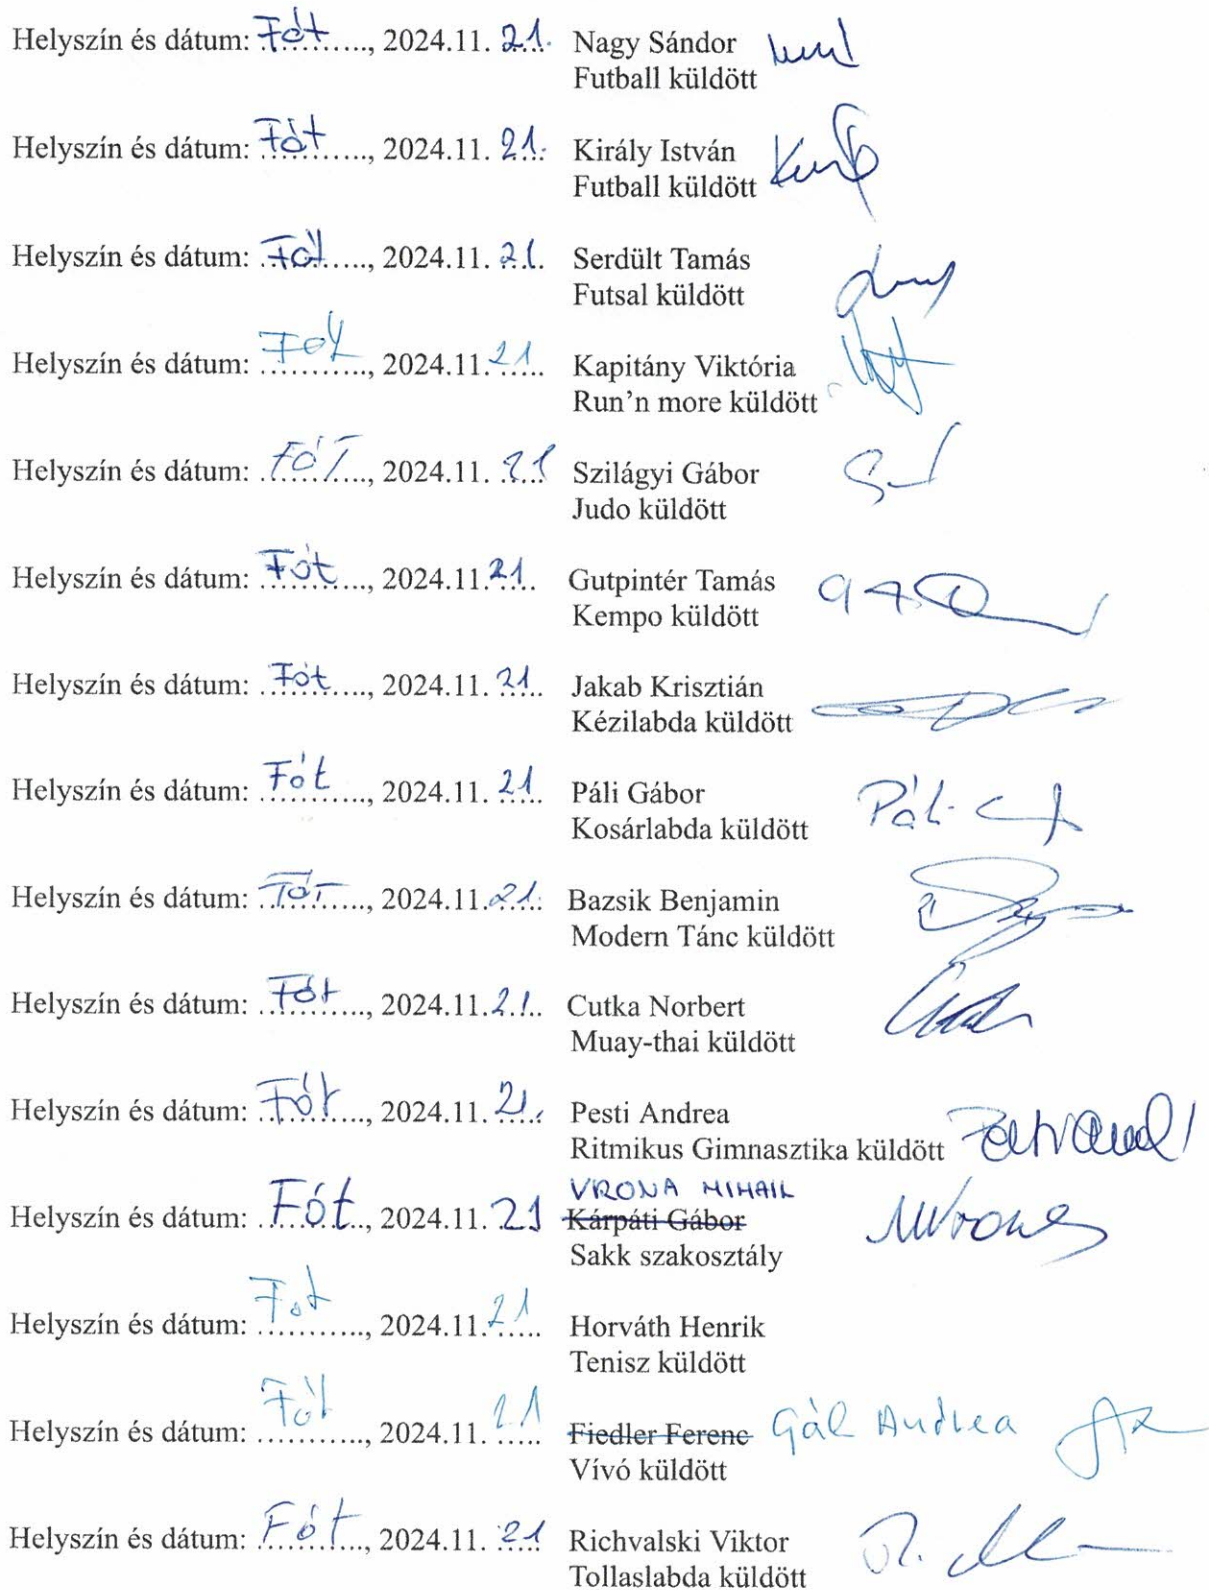 Helyszín és dátum: Fót........, 2024.11. 21. Nagy Sándor
Futball küldött
Helyszín és dátum: Fót........, 2024.11. 21. Király István
Futball küldött
Helyszín és dátum: Fót........, 2024.11. 21. Serdült Tamás
Futsal küldött
Helyszín és dátum: Fót........, 2024.11. 21. Kapitány Viktória
Run'n more küldött
Helyszín és dátum: FÓT........, 2024.11. 21 Szilágyi Gábor
Judo küldött
Helyszín és dátum: Fót........, 2024.11. 21. Gutpintér Tamás
Kempo küldött
Helyszín és dátum: Fót........, 2024.11. 21. Jakab Krisztián
Kézilabda küldött
Helyszín és dátum: Fót........, 2024.11. 21. Páli Gábor
Kosárlabda küldött
Helyszín és dátum: FÓT........, 2024.11. 21. Bazsik Benjamin
Modern Tánc küldött
Helyszín és dátum: Fót........, 2024.11. 21. Cutka Norbert
Muay-thai küldött
Helyszín és dátum: Fót........, 2024.11. 21. Pesti Andrea
Ritmikus Gimnasztika küldött
VRONA MIHAIL
Helyszín és dátum: Fót........, 2024.11. 21 Kárpáti Gábor
Sakk szakosztály
Helyszín és dátum: Fót........, 2024.11. 21 Horváth Henrik
Tenisz küldött
Helyszín és dátum: Fót........, 2024.11. 21 Fiedler Ferenc Gál Andrea
Vívó küldött
Helyszín és dátum: Fót........, 2024.11. 21 Richvalski Viktor
Tollaslabda küldött